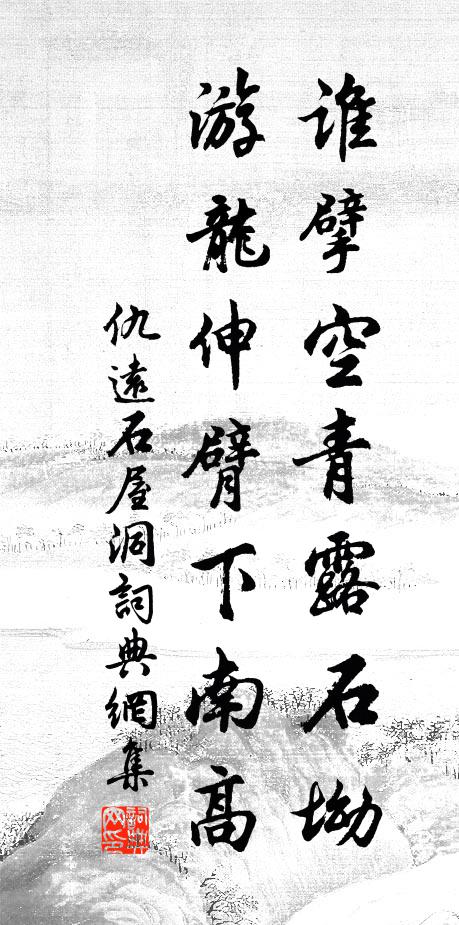 谁擘空青露石坳
游龍伸臂下南高
仇遠石屋洞詞典網集